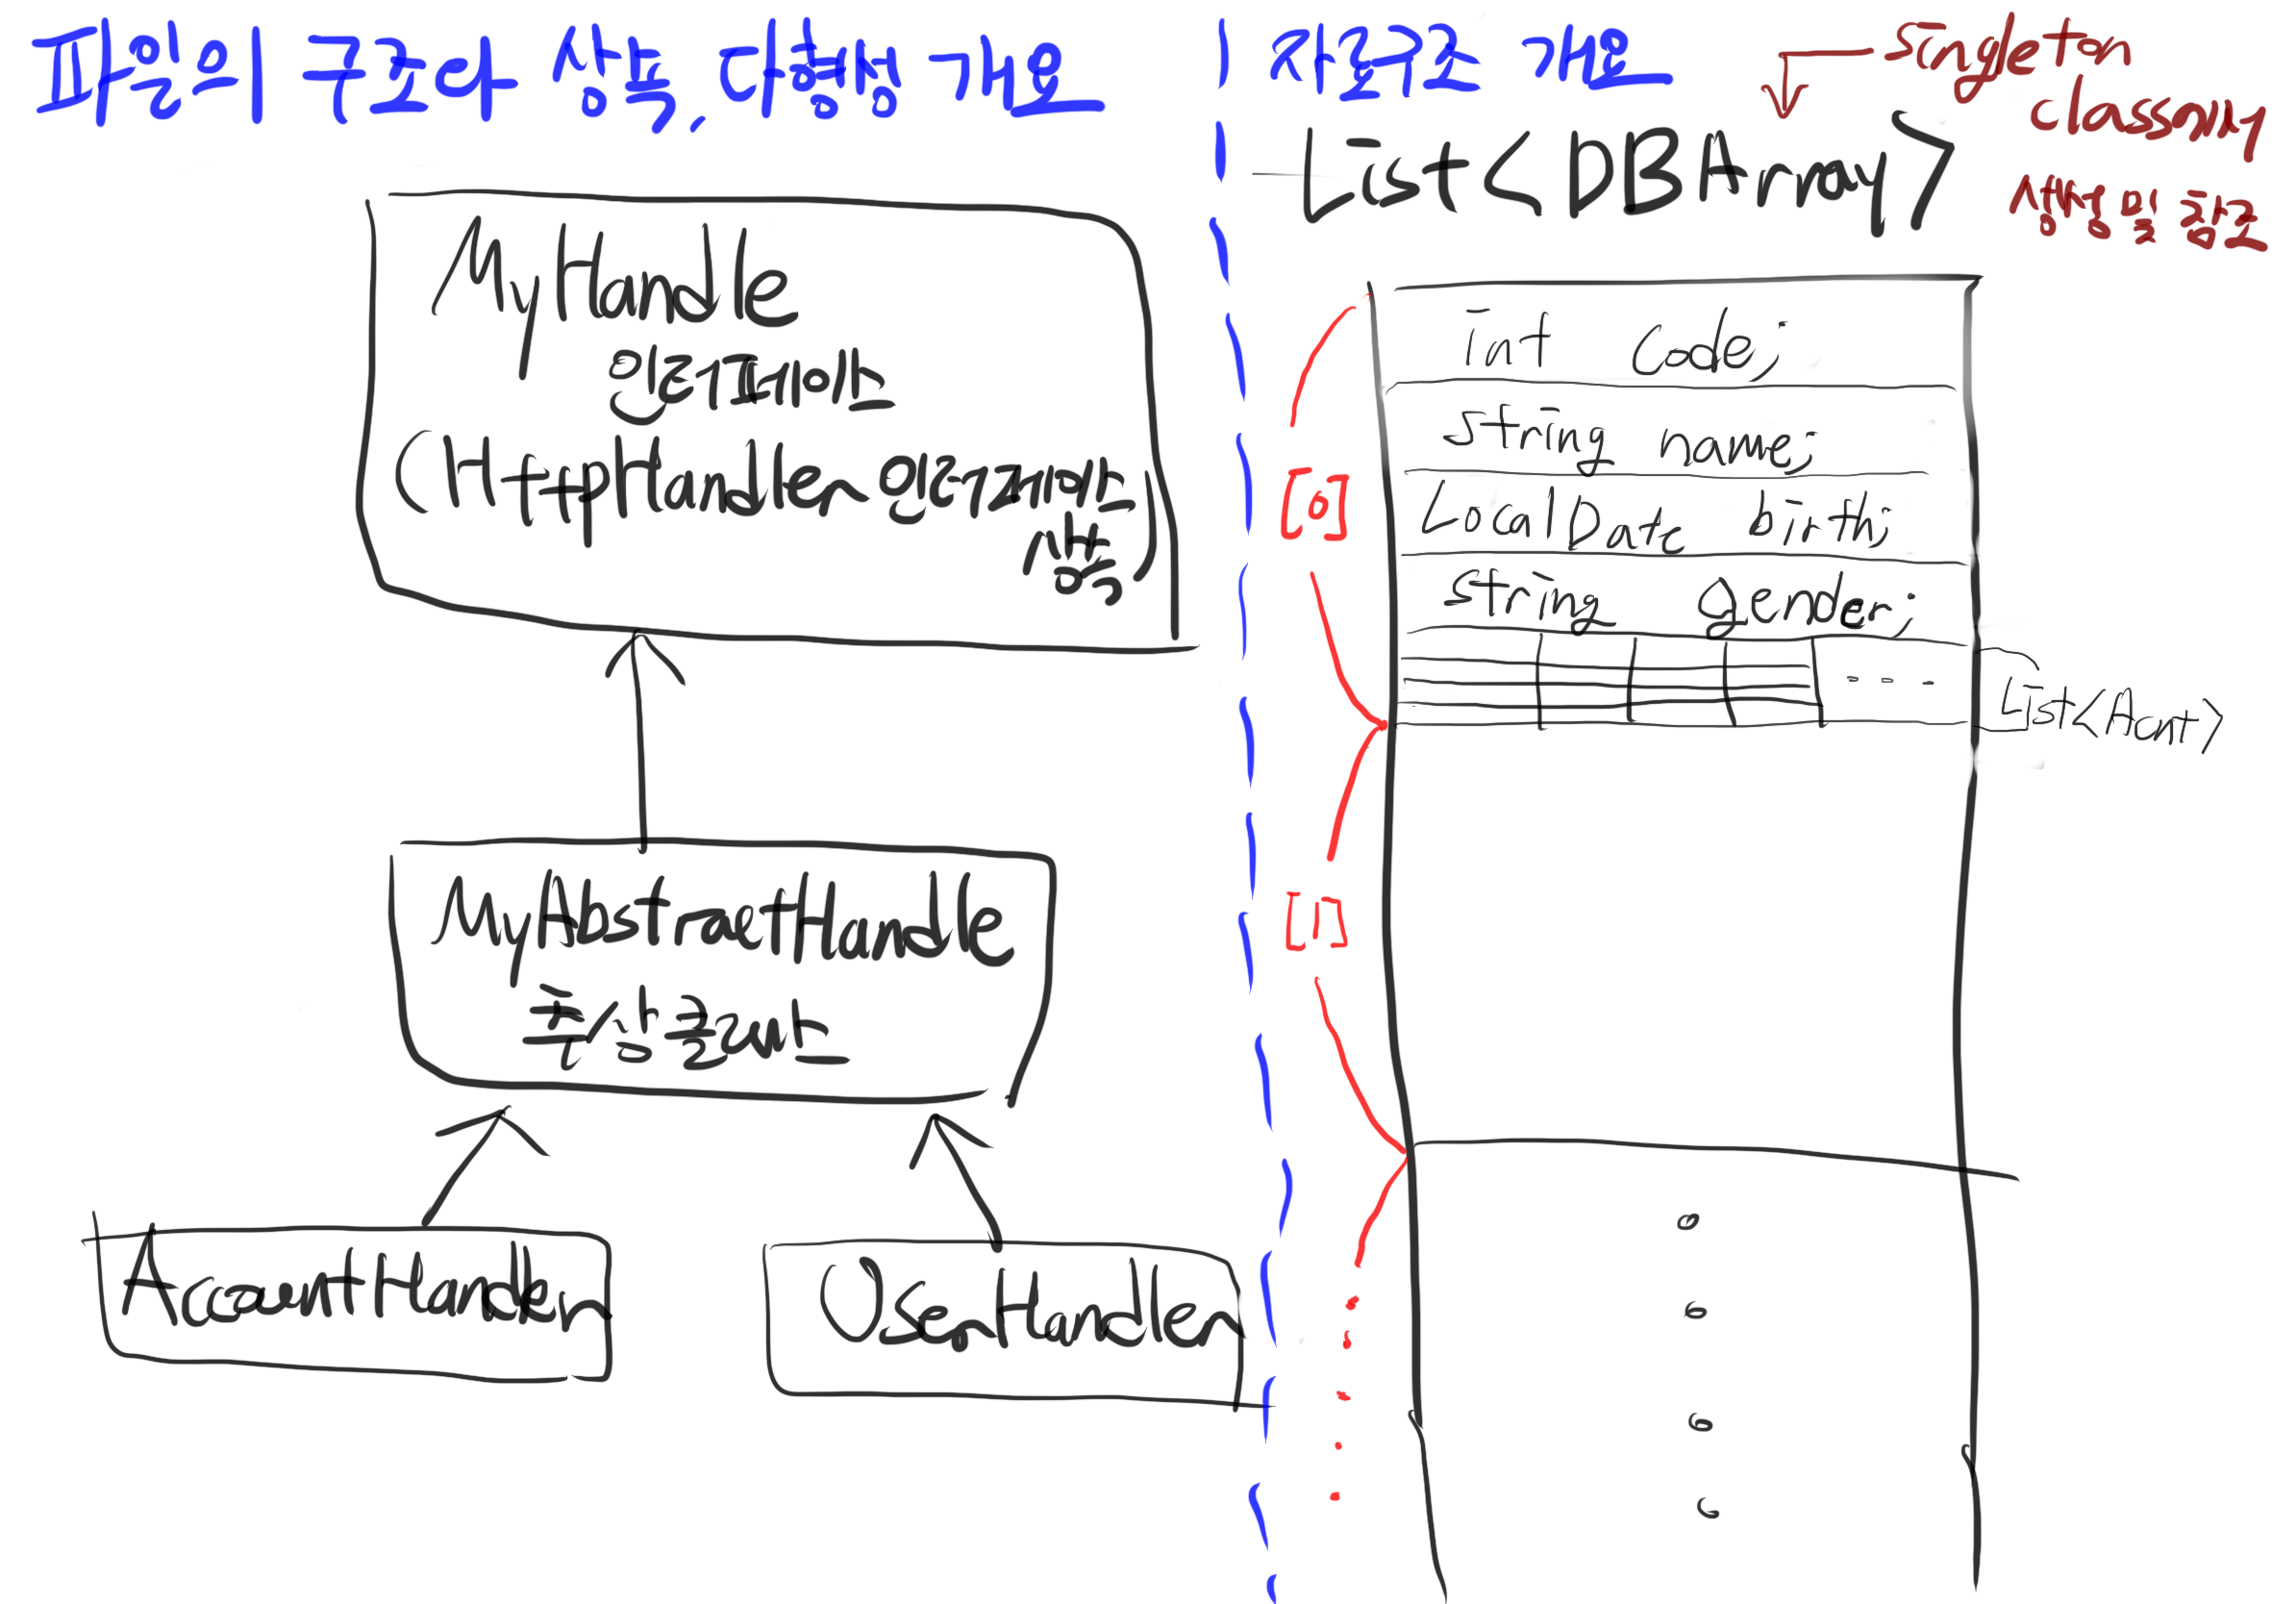 파일의 구조다 상속, 다형성 개요
MyHandle
인터페이스
(HttpHandler 인터페이스
상속)
MyAbstractHandle
추상클래스
AccountHandler
UserHandler
자료구조 개요
singleton
class에서
생성 및 참조
List<DBArray>
[0]
int code;
string name;
LocalDate birth;
string gender;
...
List<Acnt>
[1]